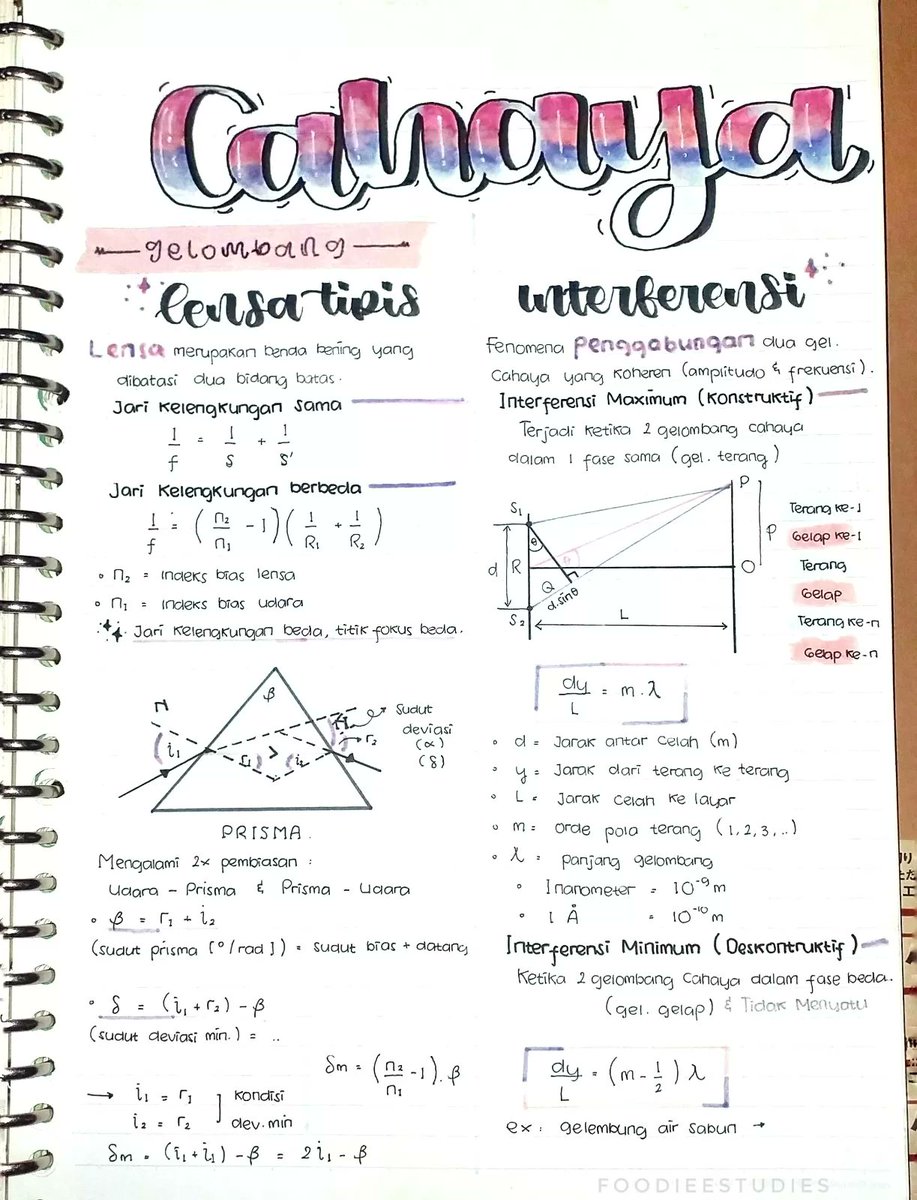 Cahaya
gelombang
lensa tipis
Lensa merupakan benda bening yang
dibatasi dua bidang batas.
Jari Kelengkungan Sama
1/f = 1/S + 1/S'
Jari Kelengkungan berbeda
1/f = (n₂/n₁ - 1)(1/R₁ + 1/R₂)
• n₂ = Indeks bias lensa
• n₁ = Indeks bias udara
Jari Kelengkungan beda, titik fokus beda.
β
N
i₁
r₁
>
i₂
N
r₂
Sudut
deviasi
(α)
(δ)
PRISMA.
Mengalami 2x pembiasan :
Udara - Prisma & Prisma - Udara
• β = r₁ + i₂
(sudut prisma [°/rad]) = sudut bias + datang
• δ = (i₁ + r₂) - β
(sudut deviasi min.) = ..
δm = (n₂/n₁ - 1) . β
→ i₁ = r₁
i₂ = r₂
] kondisi
dev. min
δm = (i₁ + i₁) - β = 2i₁ - β
interferensi
Fenomena Penggabungan dua gel.
Cahaya yang koheren (amplitudo & frekuensi).
Interferensi Maximum (Konstruktif)
Terjadi ketika 2 gelombang cahaya
dalam 1 fase sama (gel. terang)
S₁
d
R
θ
θ
Q
d.sinθ
S₂
L
P
P
O
Terang ke-1
Gelap ke-1
Terang
Gelap
Terang ke-n
Gelap ke-n
dy/L = m.λ
• d = Jarak antar celah (m)
• y = Jarak dari terang ke terang
• L = Jarak celah ke layar
• m = orde pola terang (1,2,3,..)
• λ = panjang gelombang
• 1 nanometer = 10⁻⁹ m
• 1 Å = 10⁻¹⁰ m
Interferensi Minimum (Deskontruktif)
Ketika 2 gelombang Cahaya dalam fase beda.
(gel. gelap) & Tidak Menyatu
dy/L = (m - 1/2) λ
ex : gelembung air sabun →
FOODIEESTUDIES